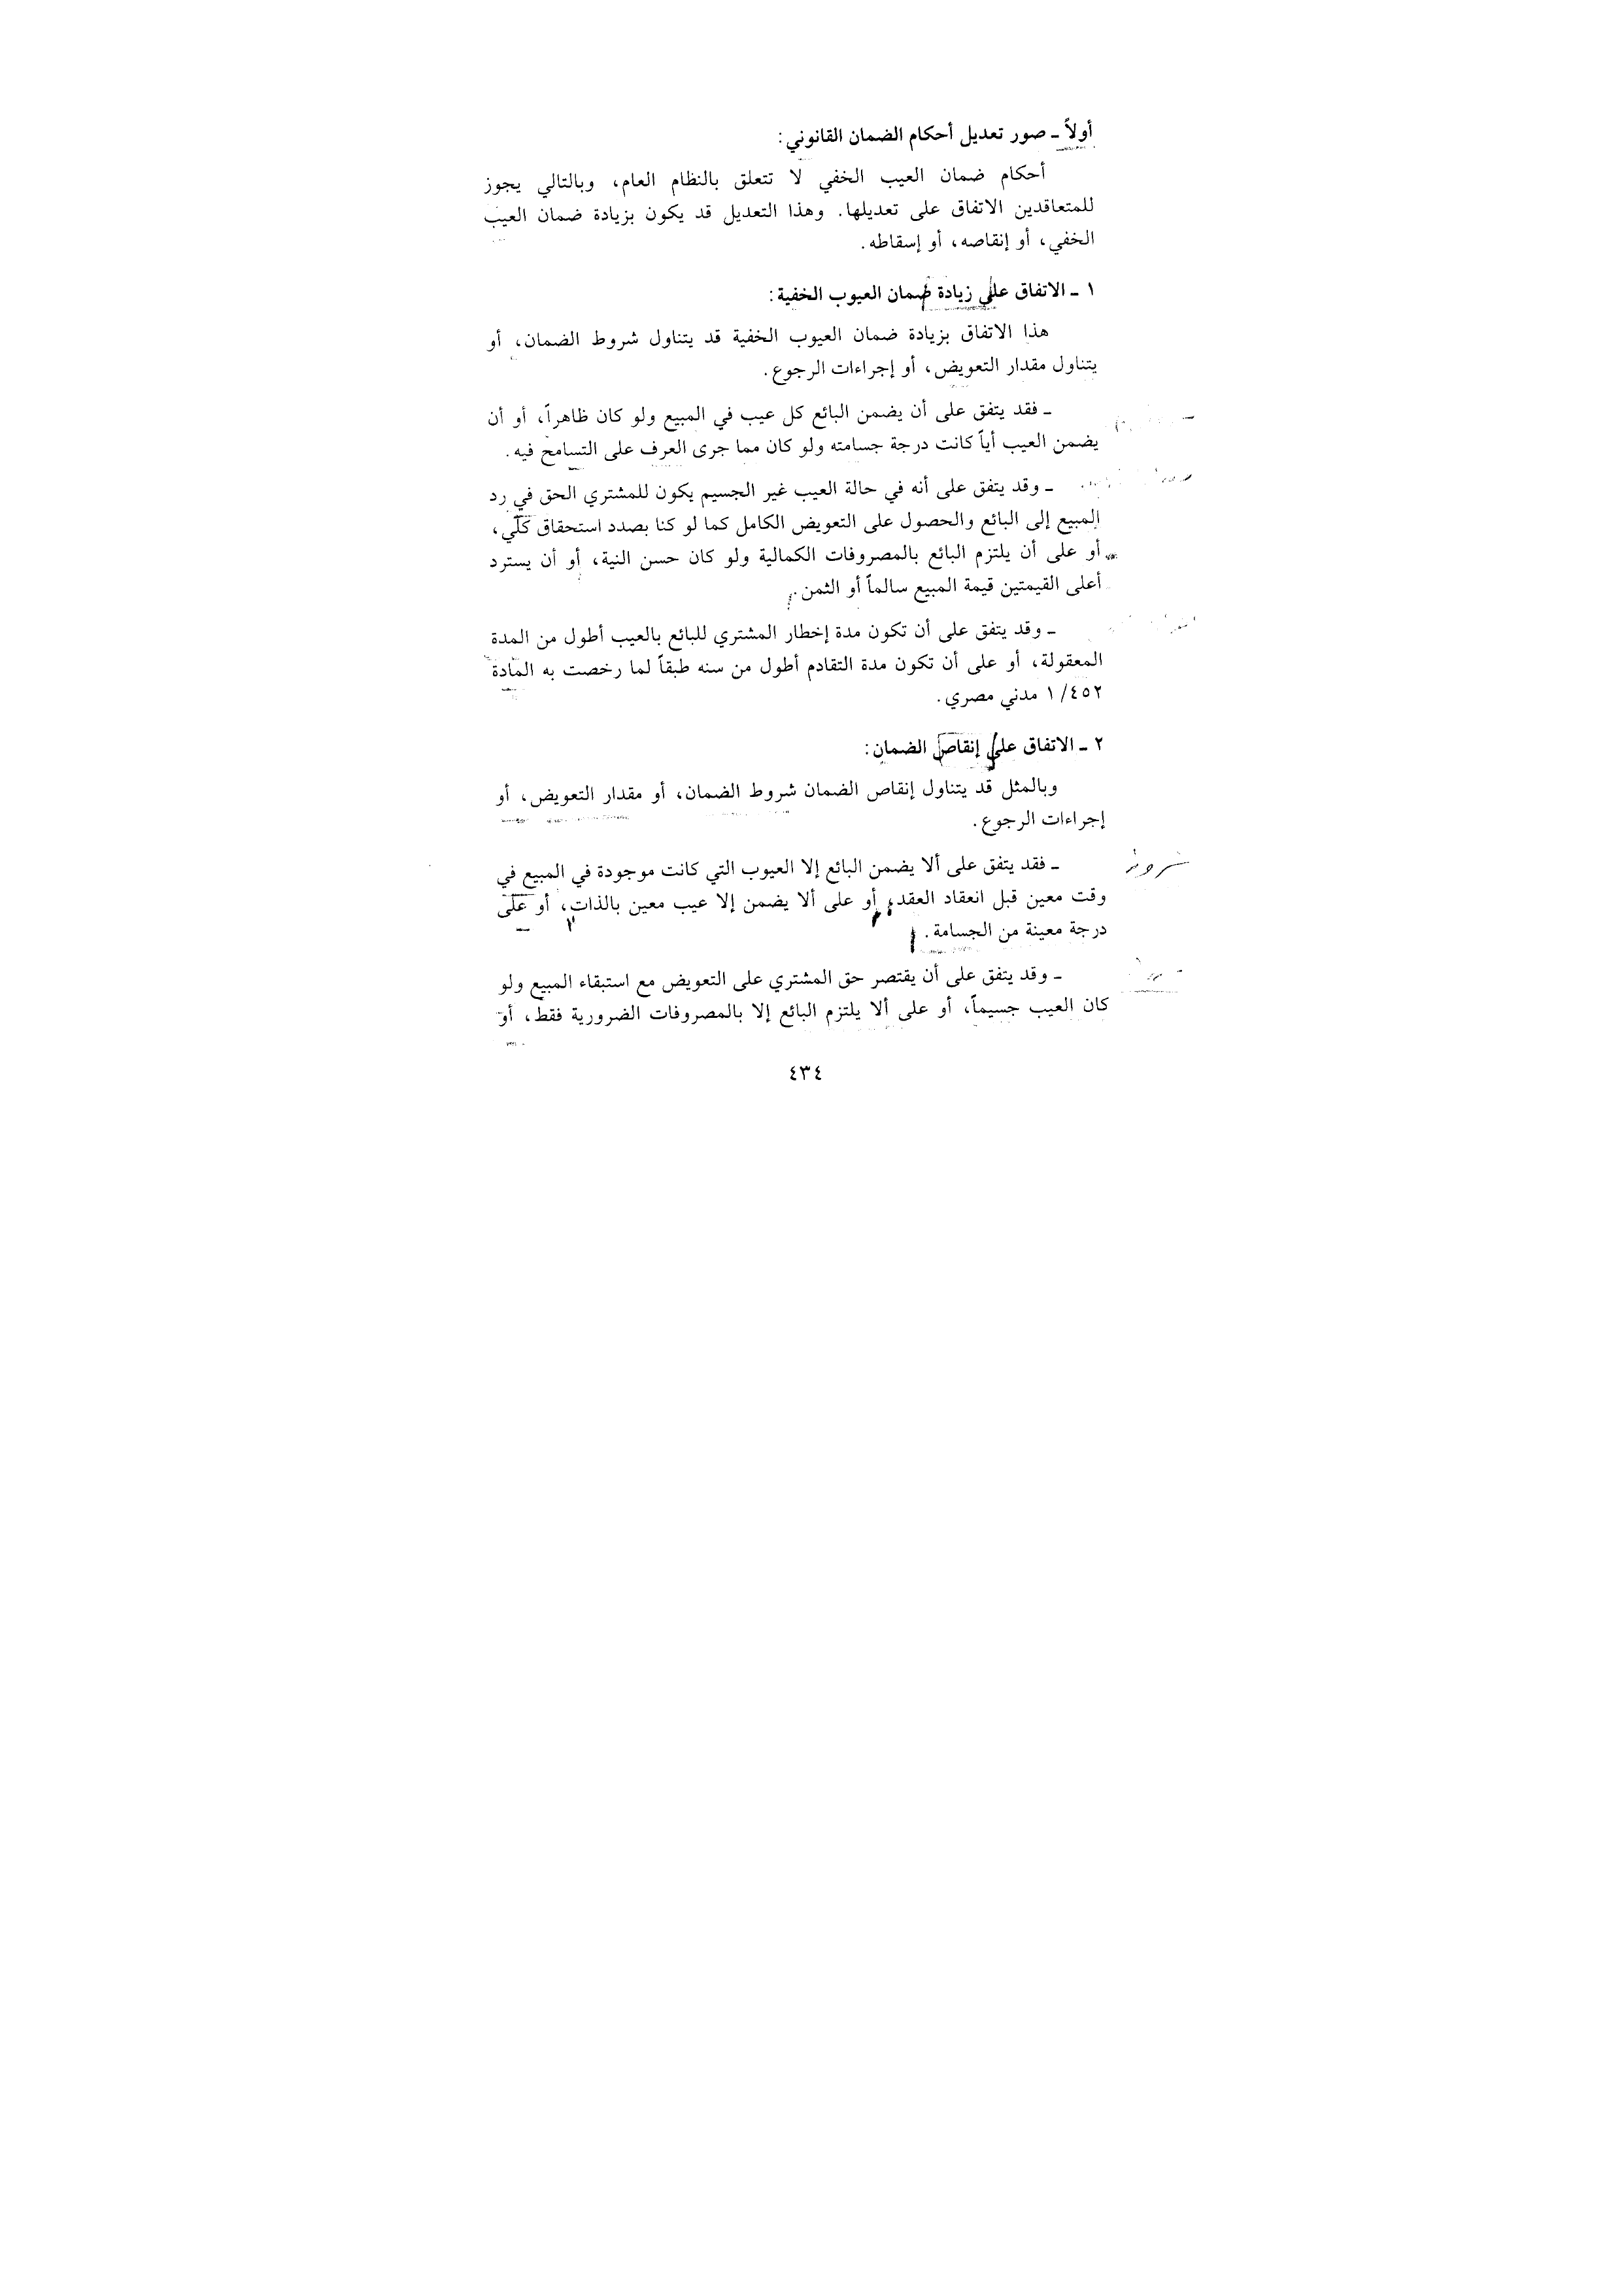 أولاً ـ صور تعديل أحكام الضمان القانوني:
أحكام ضمان العيب الخفي لا تتعلق بالنظام العام، وبالتالي يجوز
للمتعاقدين الاتفاق على تعديلها. وهذا التعديل قد يكون بزيادة ضمان العيب
الخفي، أو إنقاصه، أو إسقاطه.
١ ـ الاتفاق على زيادة ضمان العيوب الخفية:
هذا الاتفاق بزيادة ضمان العيوب الخفية قد يتناول شروط الضمان، أو
يتناول مقدار التعويض، أو إجراءات الرجوع.
ـ فقد يتفق على أن يضمن البائع كل عيب في المبيع ولو كان ظاهراً، أو أن
يضمن العيب أياً كانت درجة جسامته ولو كان مما جرى العرف على التسامح فيه.
ـ وقد يتفق على أنه في حالة العيب غير الجسيم يكون للمشتري الحق في رد
المبيع إلى البائع والحصول على التعويض الكامل كما لو كنا بصدد استحقاق كلّي،
أو على أن يلتزم البائع بالمصروفات الكمالية ولو كان حسن النية، أو أن يسترد
أعلى القيمتين قيمة المبيع سالماً أو الثمن.
ـ وقد يتفق على أن تكون مدة إخطار المشتري للبائع بالعيب أطول من المدة
المعقولة، أو على أن تكون مدة التقادم أطول من سنه طبقاً لما رخصت به المادة
١/٤٥٢ مدني مصري.
٢ ـ الاتفاق على إنقاص الضمان:
وبالمثل قد يتناول إنقاص الضمان شروط الضمان، أو مقدار التعويض، أو
إجراءات الرجوع.
ـ فقد يتفق على ألا يضمن البائع إلا العيوب التي كانت موجودة في المبيع في
وقت معين قبل انعقاد العقد، أو على ألا يضمن إلا عيب معين بالذات، أو على
درجة معينة من الجسامة.
ـ وقد يتفق على أن يقتصر حق المشتري على التعويض مع استبقاء المبيع ولو
كان العيب جسيماً، أو على ألا يلتزم البائع إلا بالمصروفات الضرورية فقط، أو
٤٣٤